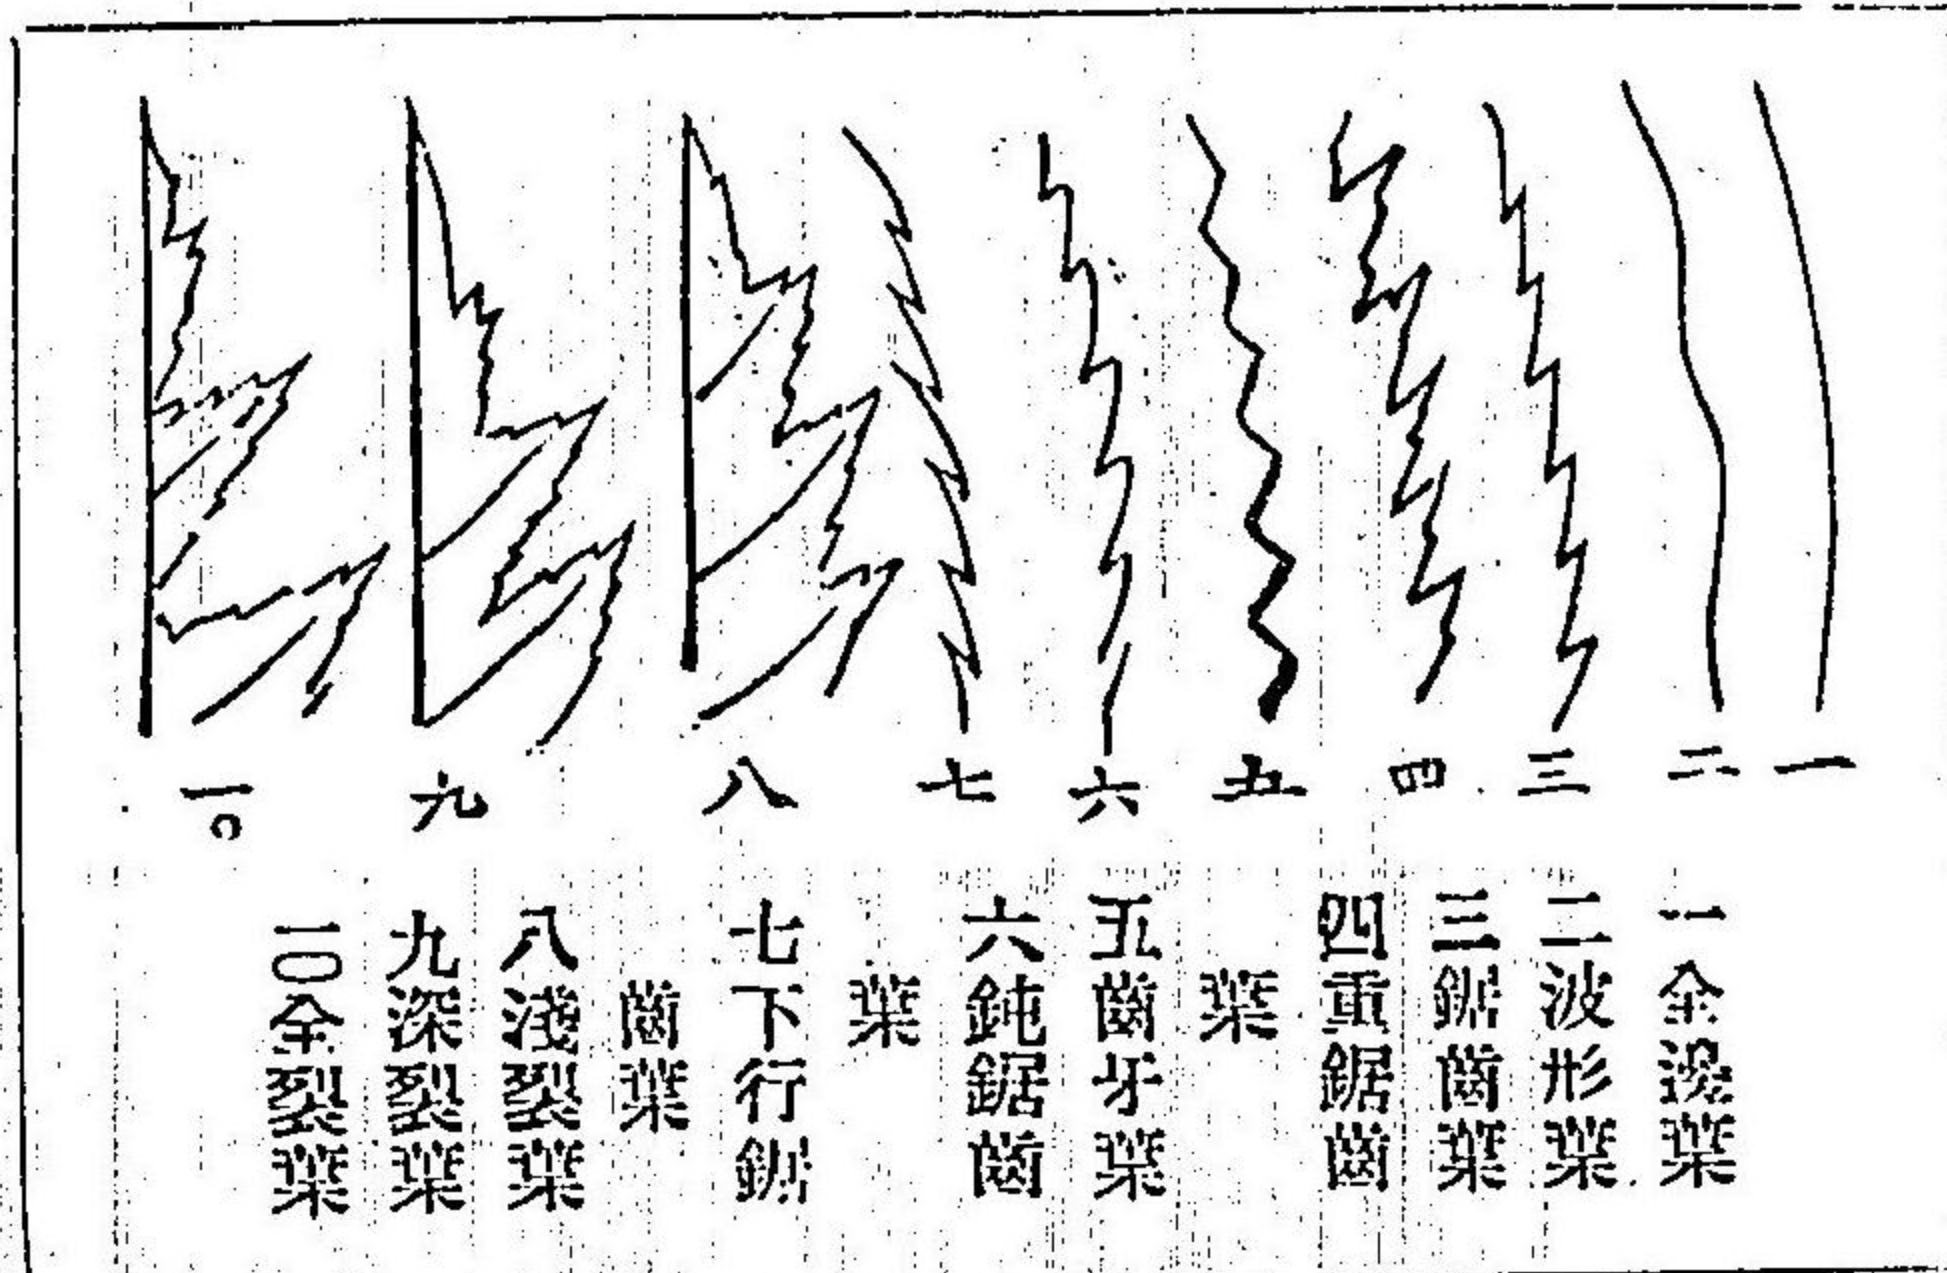 一
二
三
四
五
六
七
八
九
一〇
一全邊葉
二波形葉
三鋸齒葉
四重鋸齒
葉
五齒牙葉
六鈍鋸齒
葉
七下行鋸
齒葉
八淺裂葉
九深裂葉
一〇全裂葉